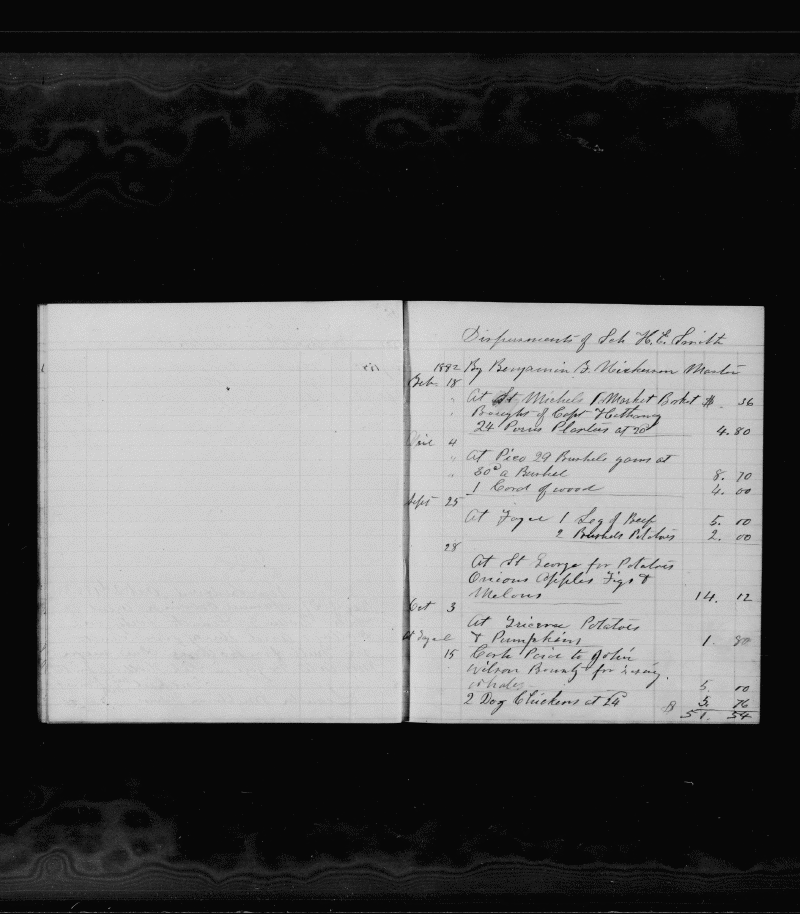 Dispursments of Sch H. E. Smith
1882 By Benjamin B. Nickerson Master
Feb 18
" At St Michels 1 Market Basket $ . 36
" Boought of Capt
24 Porus Plasters at 20c 4.80
4
" At Pico 29 Bushels yams at
" 30c a Bushel 8. 70
1 Cord of wood 4. 00
Sept 25
At Fayal 1 Leg of Beef 5. 00
2 Bushels Potatoes 2. 00
28
At St George for Potatoes
Onions Apples Figs &
Melons 14. 12
Oct 3
At Potatoes
At Fayal & Pumpkins 1. 80
15 Cash Paid to John
Wilson Bounty for
whales 5. 00
2 Doz Chickens at 24 5. 76
$ 51. 54